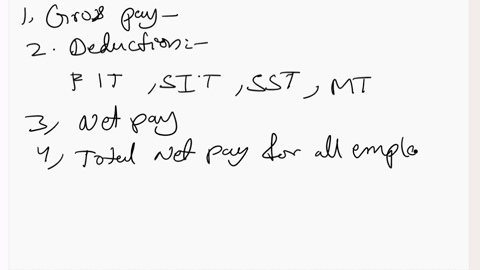 1, Gross pay-
2. Deduction:-
FIT, SIT, SST, MT
3, Net pay
4, Total Net pay for all emplo